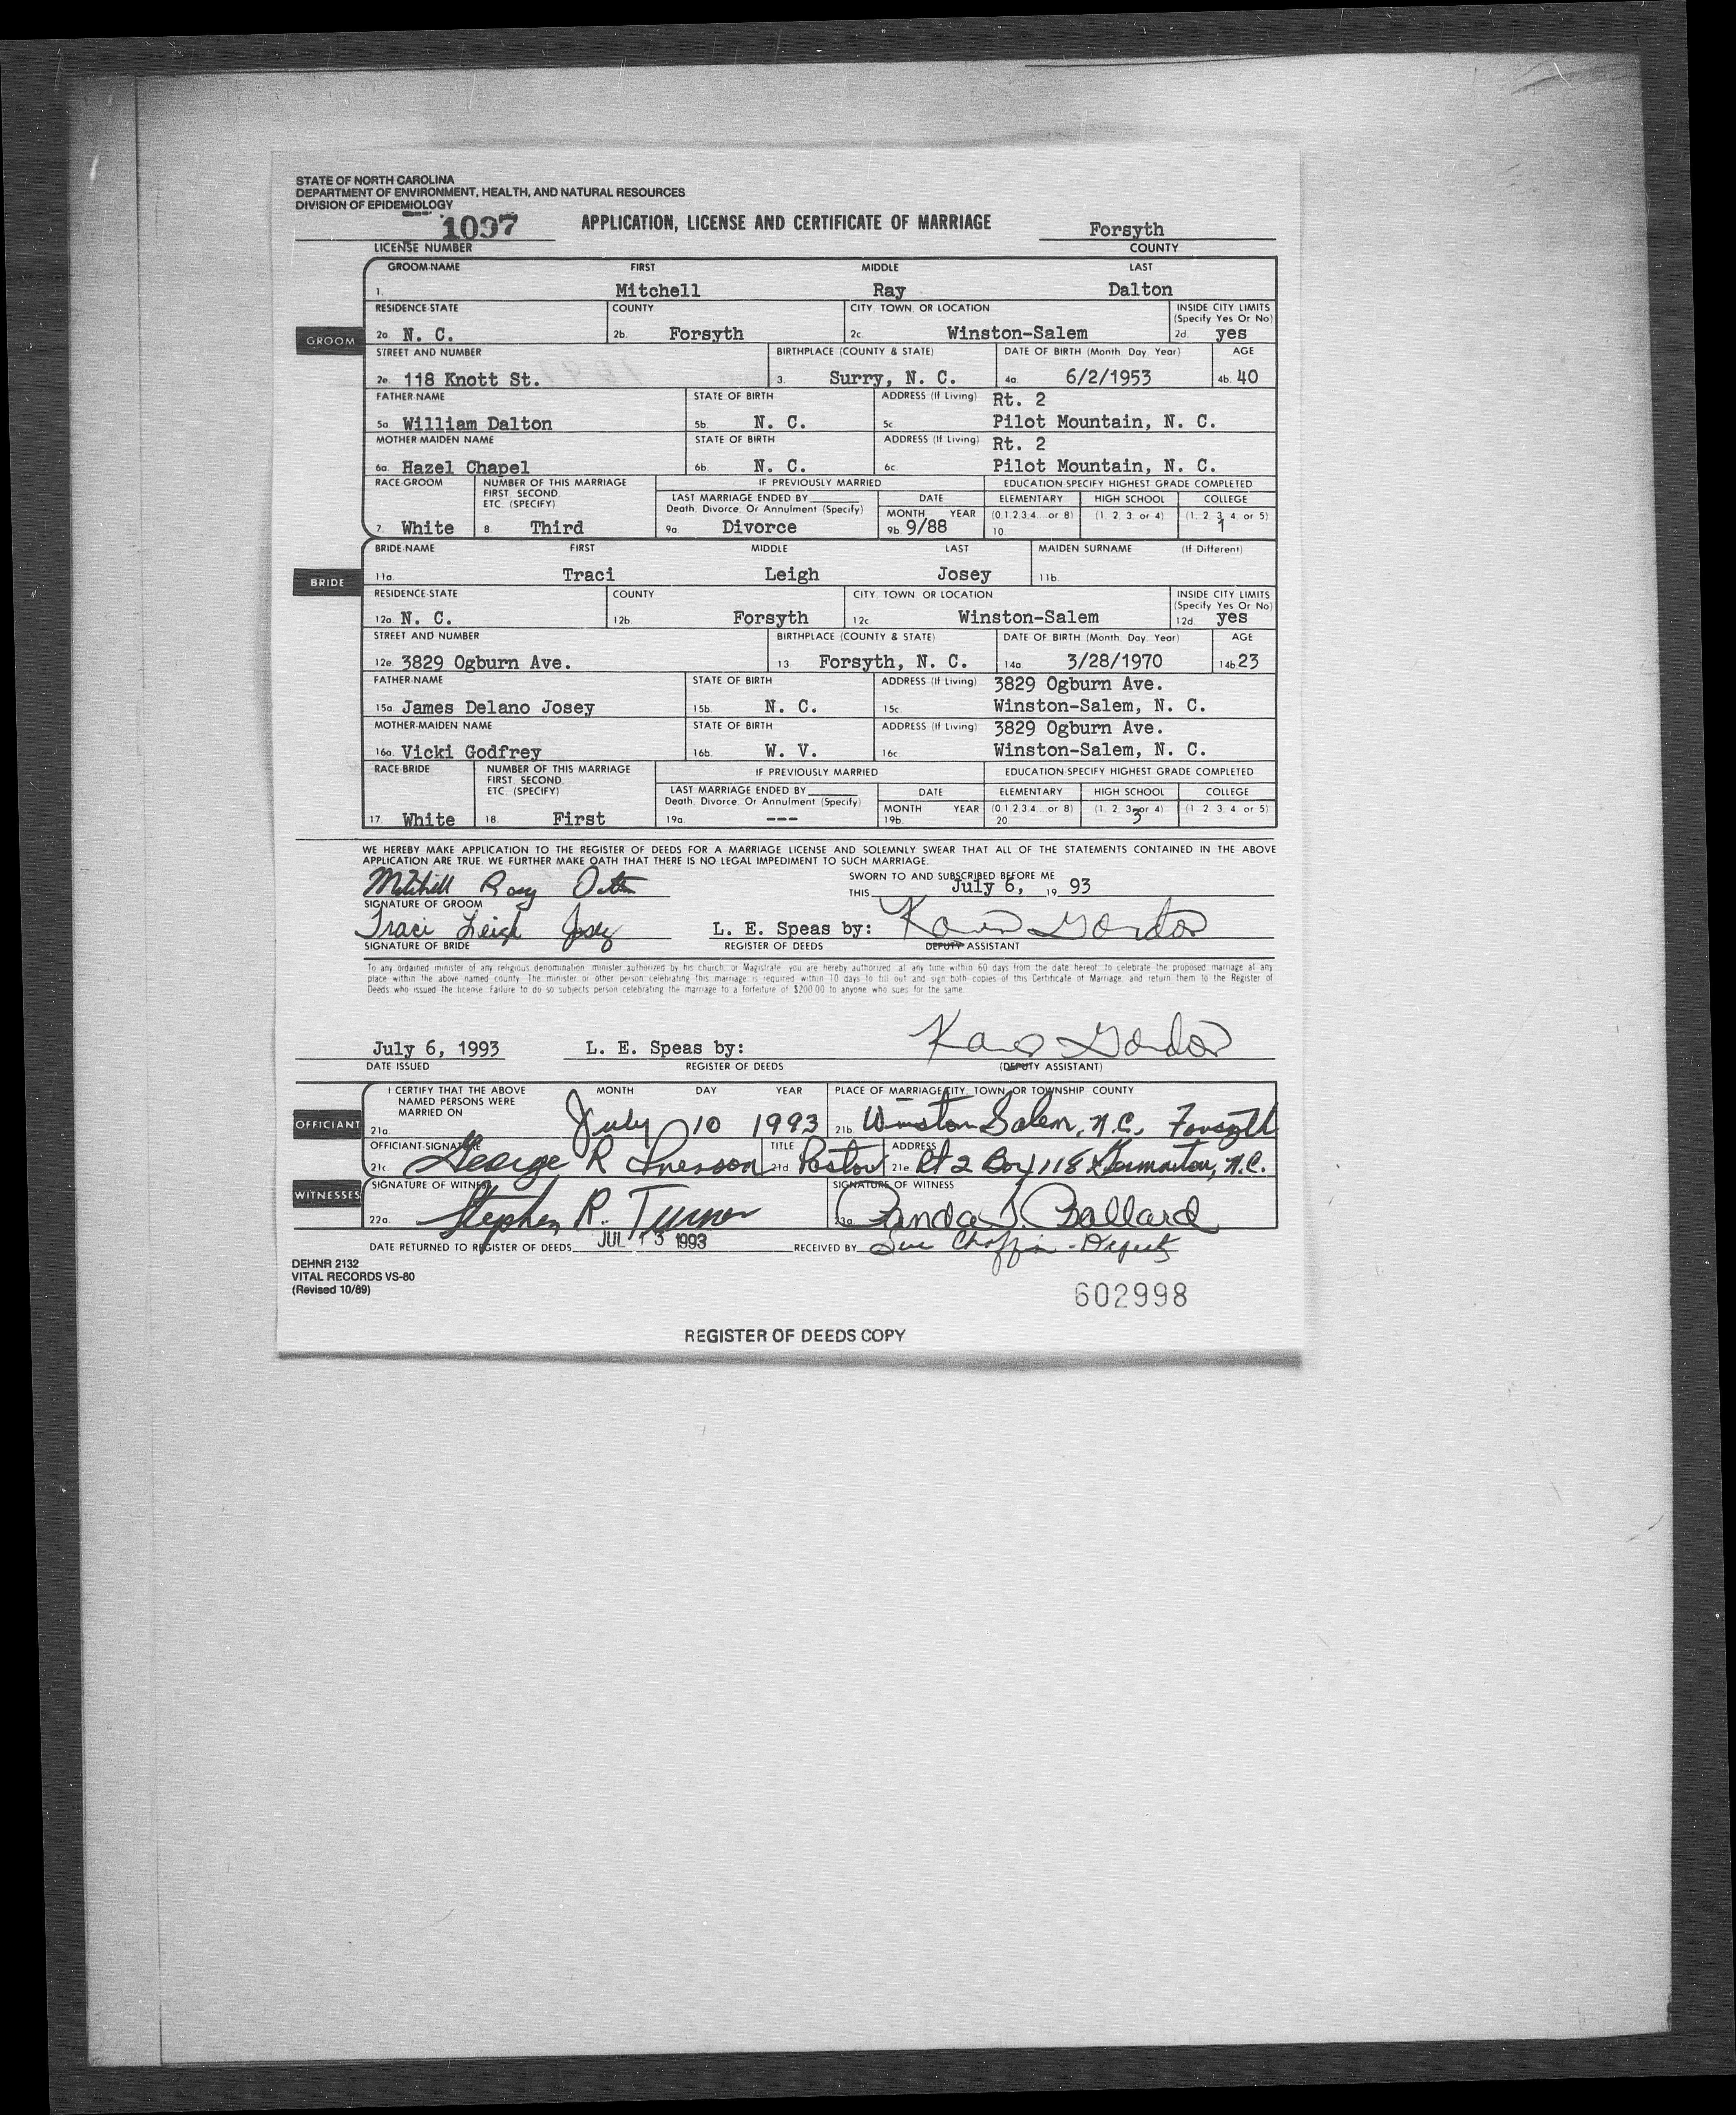 STATE OF NORTH CAROLINA
DEPARTMENT OF ENVIRONMENT, HEALTH, AND NATURAL RESOURCES
DIVISION OF EPIDEMIOLOGY
1097 APPLICATION, LICENSE AND CERTIFICATE OF MARRIAGE Forsyth
LICENSE NUMBER COUNTY
GROOM-NAME FIRST MIDDLE LAST
1. Mitchell Ray Dalton
RESIDENCE-STATE COUNTY CITY, TOWN, OR LOCATION INSIDE CITY LIMITS (Specify Yes Or No)
GROOM 2a. N. C. 2b. Forsyth 2c. Winston-Salem 2d. yes
STREET AND NUMBER BIRTHPLACE (COUNTY & STATE) DATE OF BIRTH (Month, Day, Year) AGE
2e. 118 Knott St. 3. Surry, N. C. 4a. 6/2/1953 4b. 40
FATHER-NAME STATE OF BIRTH ADDRESS (If Living) Rt. 2
5a. William Dalton 5b. N. C. 5c. Pilot Mountain, N. C.
MOTHER-MAIDEN NAME STATE OF BIRTH ADDRESS (If Living) Rt. 2
6a. Hazel Chapel 6b. N. C. 6c. Pilot Mountain, N. C.
RACE-GROOM NUMBER OF THIS MARRIAGE IF PREVIOUSLY MARRIED EDUCATION-SPECIFY HIGHEST GRADE COMPLETED
FIRST, SECOND, LAST MARRIAGE ENDED BY DATE ELEMENTARY HIGH SCHOOL COLLEGE
ETC. (SPECIFY) Death, Divorce, Or Annulment (Specify) MONTH YEAR (0,1,2,3,4....or 8) (1, 2, 3, or 4) (1, 2, 3, 4, or 5)
7. White 8. Third 9a. Divorce 9b. 9/88 10. 1
BRIDE-NAME FIRST MIDDLE LAST MAIDEN SURNAME (If Different)
BRIDE 11a. Traci Leigh Josey 11b.
RESIDENCE-STATE COUNTY CITY, TOWN, OR LOCATION INSIDE CITY LIMITS (Specify Yes Or No)
12a. N. C. 12b. Forsyth 12c. Winston-Salem 12d. yes
STREET AND NUMBER BIRTHPLACE (COUNTY & STATE) DATE OF BIRTH (Month, Day, Year) AGE
12e. 3829 Ogburn Ave. 13. Forsyth, N. C. 14a. 3/28/1970 14b. 23
FATHER-NAME STATE OF BIRTH ADDRESS (If Living) 3829 Ogburn Ave.
15a. James Delano Josey 15b. N. C. 15c. Winston-Salem, N. C.
MOTHER-MAIDEN NAME STATE OF BIRTH ADDRESS (If Living) 3829 Ogburn Ave.
16a. Vicki Godfrey 16b. W. V. 16c. Winston-Salem, N. C.
RACE-BRIDE NUMBER OF THIS MARRIAGE IF PREVIOUSLY MARRIED EDUCATION-SPECIFY HIGHEST GRADE COMPLETED
FIRST, SECOND, LAST MARRIAGE ENDED BY DATE ELEMENTARY HIGH SCHOOL COLLEGE
ETC. (SPECIFY) Death, Divorce, Or Annulment (Specify) MONTH YEAR (0,1,2,3,4....or 8) (1, 2, 3, or 4) (1, 2, 3, 4, or 5)
17. White 18. First 19a. --- 19b. 20. 3
WE HEREBY MAKE APPLICATION TO THE REGISTER OF DEEDS FOR A MARRIAGE LICENSE AND SOLEMNLY SWEAR THAT ALL OF THE STATEMENTS CONTAINED IN THE ABOVE
APPLICATION ARE TRUE. WE FURTHER MAKE OATH THAT THERE IS NO LEGAL IMPEDIMENT TO SUCH MARRIAGE.
SWORN TO AND SUBSCRIBED BEFORE ME
Mitchell Ray Dalton THIS July 6, 19 93
SIGNATURE OF GROOM
Traci Leigh Josey L. E. Speas by: Karen Gordon
SIGNATURE OF BRIDE REGISTER OF DEEDS DEPUTY ASSISTANT
To any ordained minister of any religious denomination, minister authorized by his church, or Magistrate, you are hereby authorized, at any time within 60 days from the date hereof, to celebrate the proposed marriage at any
place within the above named county. The minister or other person celebrating this marriage is required within 10 days to fill out and sign both copies of this Certificate of Marriage, and return them to the Register of
Deeds who issued the license. Failure to do so subjects person celebrating the marriage to a forfeiture of $200.00 to anyone who sues for the same.
July 6, 1993 L. E. Speas by: Karen Gordon
DATE ISSUED REGISTER OF DEEDS (DEPUTY ASSISTANT)
I CERTIFY THAT THE ABOVE MONTH DAY YEAR PLACE OF MARRIAGE-CITY, TOWN, OR TOWNSHIP, COUNTY
NAMED PERSONS WERE
MARRIED ON
OFFICIANT 21a. July 10 1993 21b. Winston Salem, N.C. Forsyth
OFFICIANT-SIGNATURE TITLE ADDRESS
21c. George R 21d. Pastor 21e. Rt 2 Box 118 Germanton, N.C.
WITNESSES SIGNATURE OF WITNESS SIGNATURE OF WITNESS
22a. Stephen R. Turner 23a. Ballard
DATE RETURNED TO REGISTER OF DEEDS JUL 13 1993 RECEIVED BY Sue Chaffin - Deputy
DEHNR 2132
VITAL RECORDS VS-80
(Revised 10/89)
602998
REGISTER OF DEEDS COPY